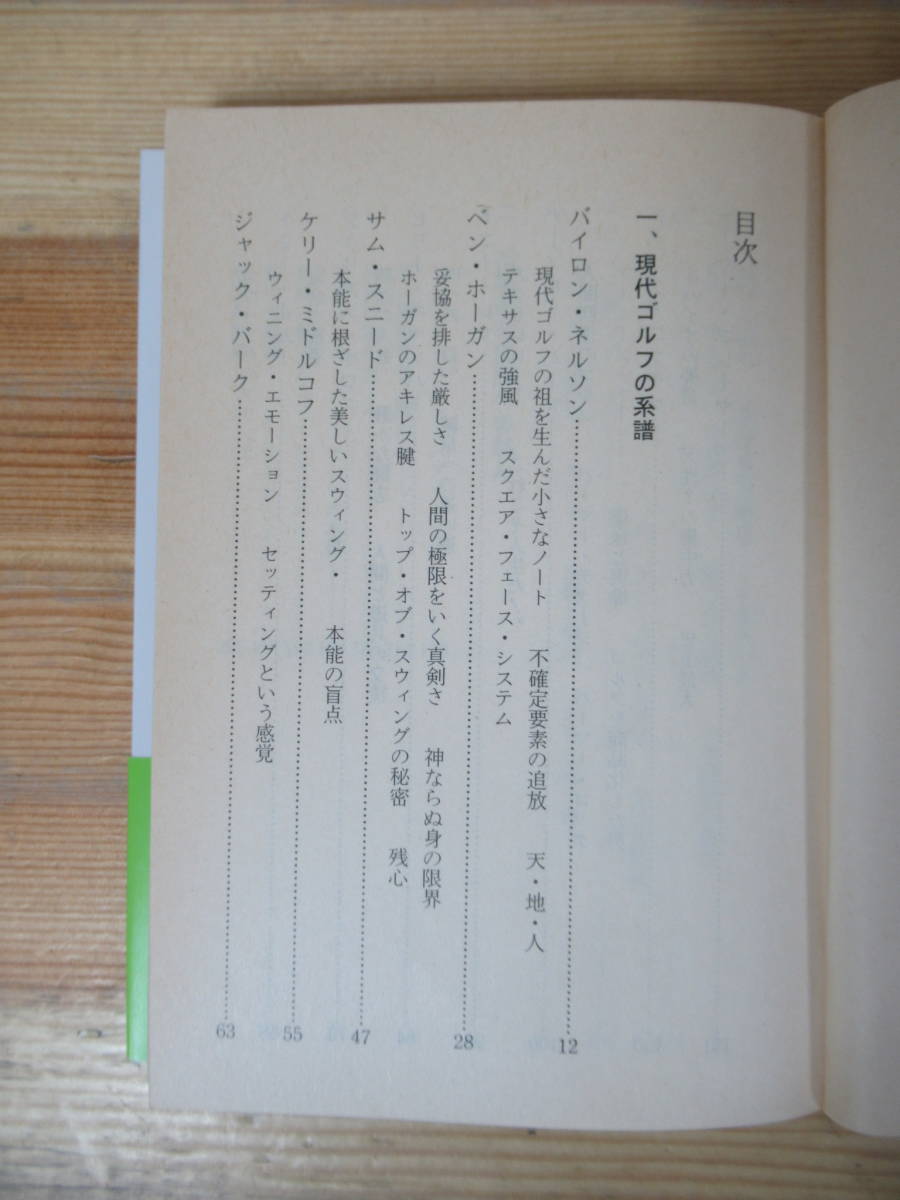 目次
一、現代ゴルフの系譜
バイロン・ネルソン………12
現代ゴルフの祖を生んだ小さなノート　不確定要素の追放　天・地・人
テキサスの強風　スクエア・フェース・システム
ベン・ホーガン………28
妥協を排した厳しさ　人間の極限をいく真剣さ　神ならぬ身の限界
ホーガンのアキレス腱　トップ・オブ・スウィングの秘密　残心
サム・スニード………47
本能に根ざした美しいスウィング・　本能の盲点
ケリー・ミドルコフ………55
ウィニング・エモーション　セッティングという感覚
ジャック・バーク………63